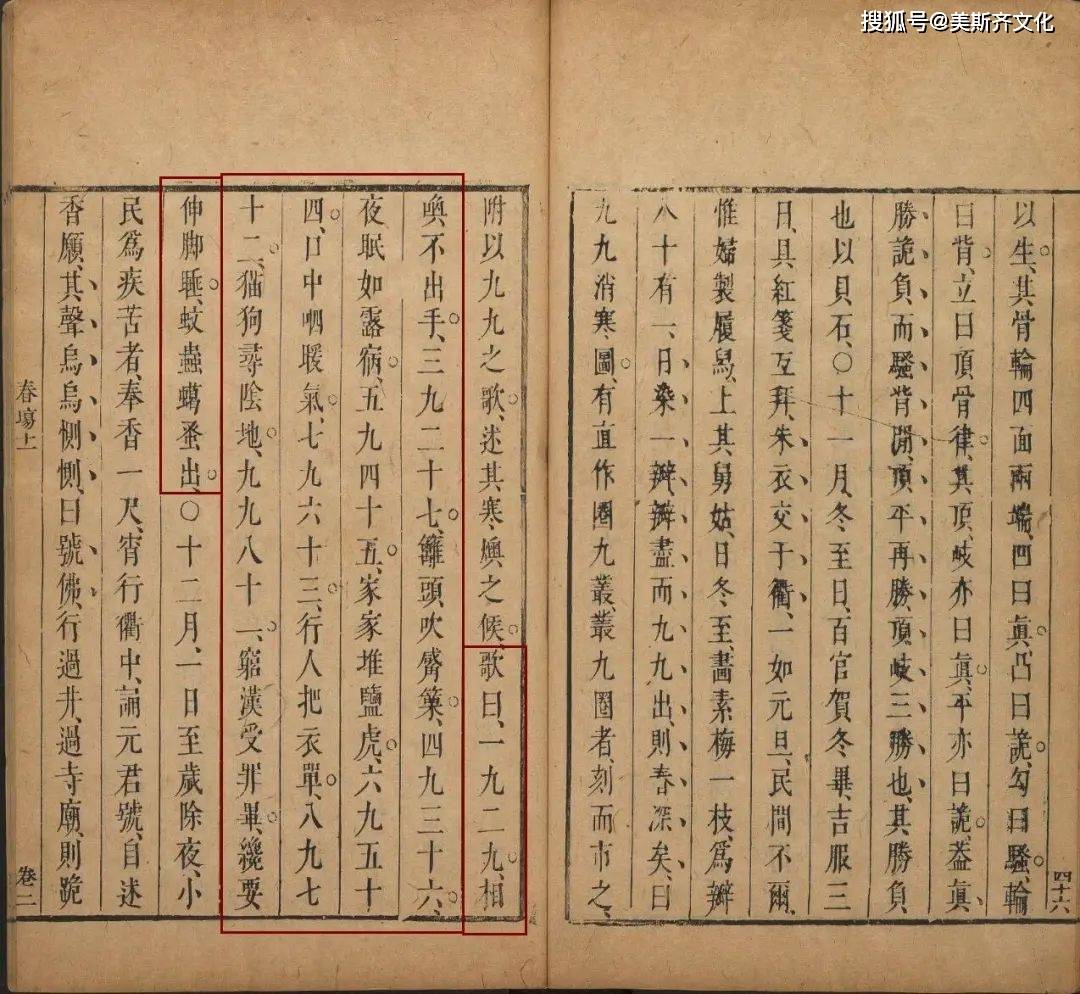 搜狐号@美斯齐文化
以生、其骨輪四面兩端、凹曰眞、凸曰詭、勾曰騷、輪
曰背、立曰頂骨律、其頂岐亦曰眞、平亦曰詭、葢眞
勝詭負、而騷背閒、頂平再勝、頂岐三勝也、其勝負
也以貝石、○十一月、冬至日、百官賀冬畢、吉服三
日、具紅箋互拜、朱衣交于衢、一如元旦、民間不爾、
惟婦製履舄、上其舅姑、日冬至、畵素梅一枝、爲瓣
八十有一、日染一瓣、瓣盡而九九出、則春深矣、曰
九九消寒圖、有直作圈九叢、叢九圈者、刻而市之、
四十六
附以九九之歌、述其寒燠之候、歌曰、一九二九、相
喚不出手、三九二十七、籬頭吹觱篥、四九三十六、
夜眠如露宿、五九四十五、家家堆鹽虎、六九五十
四、口中呬暖氣、七九六十三、行人把衣單、八九七
十二、猫狗尋陰地、九九八十一、窮漢受罪畢、纔要
伸脚睡、蚊蟲蟣蚤出、○十二月、一日至歲除夜、小
民爲疾苦者、奉香一尺、宵行衢中、誦元君號、自述
香願、其聲烏烏惻惻、曰號佛、行過井、過寺廟、則跪
春塲上
卷二